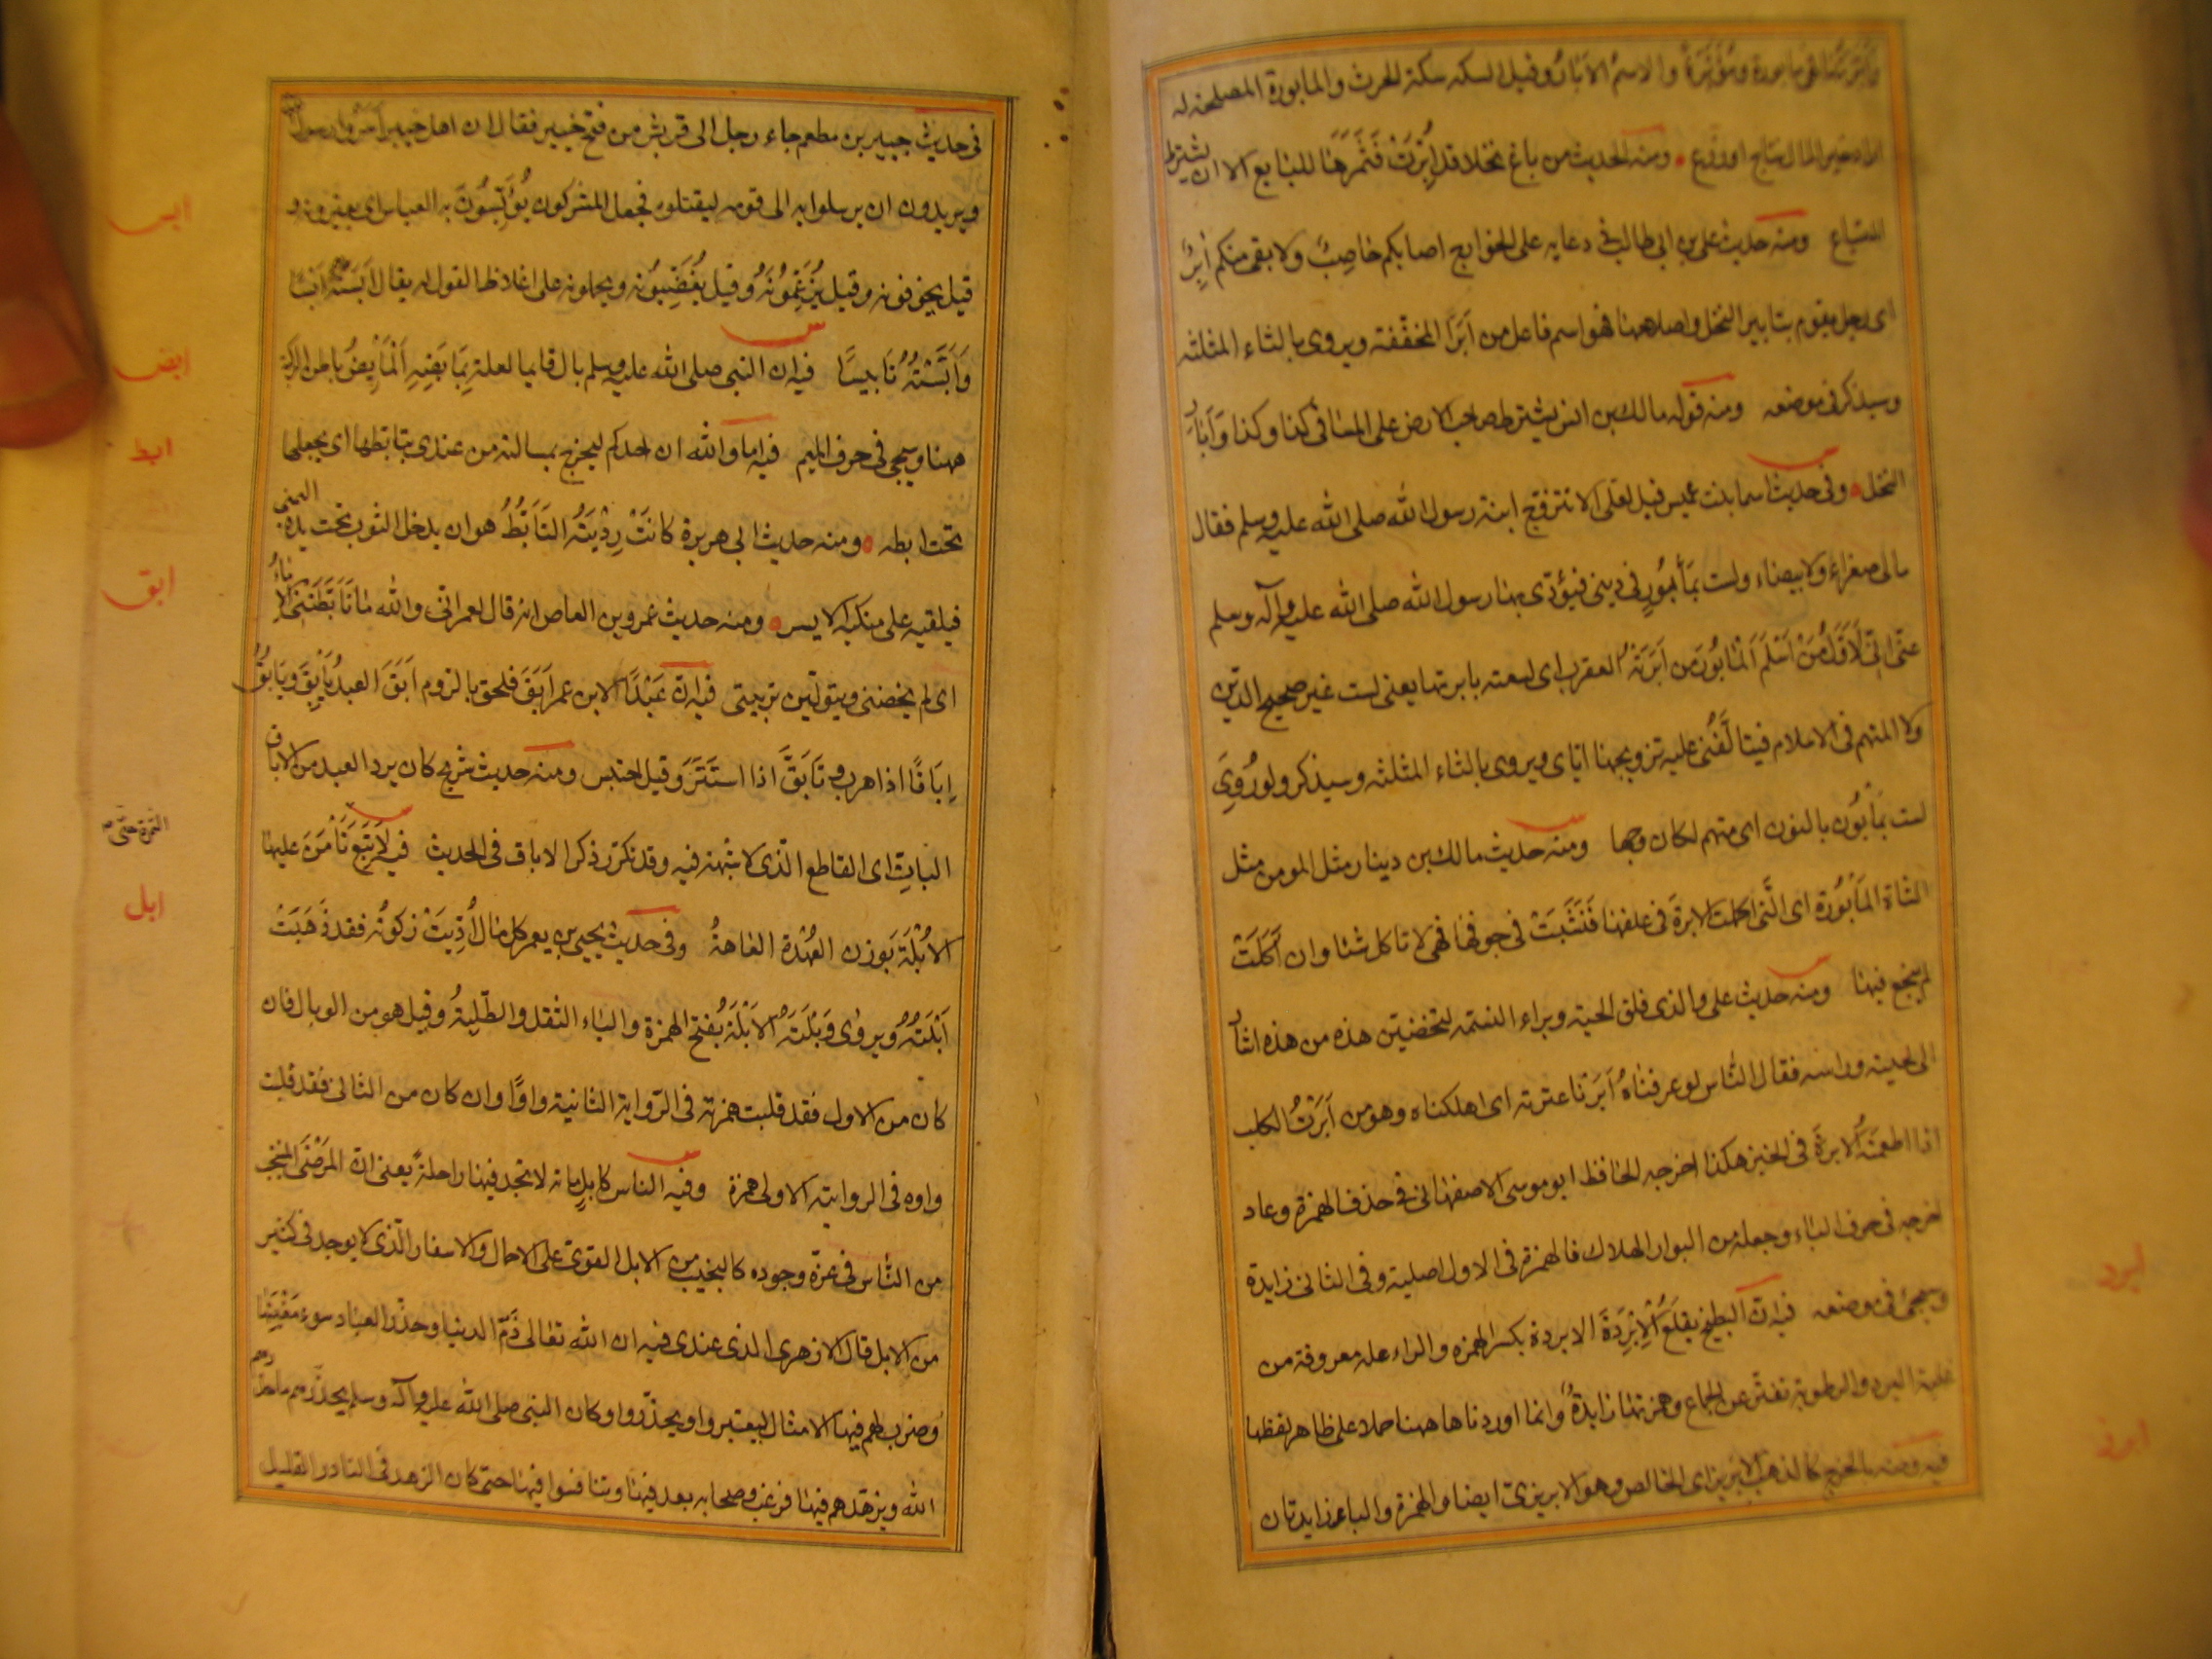 وابرتها فهي مابورة ومؤبرة والاسم الابار وقيل السكه سكة الحرث والمابورة المصلحة له
اراد خير المال نتاج او زرع ومنه الحديث من باع نخلا قد اِبّرَتْ فَثَمَرَهَا للبايع الا ان يشترط
المبتاع ومنه حديث علي بن ابي طالب في دعايه على الخوارج اصابكم حَاصِبٌ ولا بقي منكم اٰبِرٌ
اي رجل يقوم بتابير النخل واصلاحها فهو اسم فاعل من اَبَرَ المخففة ويروى بالثاء المثلثه
وسيذكر في موضعه ومنه قوله مالك بن انس يشترط صاحب الارض على المساقي كذا وكذا وَاِبَارَ
النخل وفي حديث اسما بنت عميس قيل لعلي الا تتزوج ابنة رسول الله صلى الله عليه وسلم فقال
مالي صفراء ولا بيضاء ولست بمَأبُورٍ في ديني فيُؤَرّي بها رسول الله صلى الله عليه وآله وسلم
عنّى انّي لَاَوّلُ مَنْ اَسْلَمَ اَلْمَابُورُ من اَبَرَتْهُ العقرب اي لسعته بابرتها يعني لست غير صحيح الدّين
ولا المتهم في الاسلام فيتالّفُني عليه تزويجها اياى ويروى بالثاء المثلثه وسيذكر ولو رُوِيَ
لست بمَأْبُون بالنون اي متهم لكان وجها ومنه حديث مالك بن دينار مثل المومن مثل
الشاة المَاْبُورَة اي الّتي اكلت الابرة في علفها فَنَشَبَتْ في جوفها فهي لا تاكل شئا وان اَكَلَتْ
لم ينجع فيها ومنه حديث علي والذي فلق الحبة وبراء النسمه لتخضبن هذه من هذه اشار
الى لحيته وراسه فقال النّاس لو عرفناهُ اَبَرْنَا عترته اي اهلكناه وهو من اَبَرْتُ الكلب
اذا اطعمتَهُ الابرةَ في الخبز هكذا اخرجه الحافظ ابو موسى الاصفهاني في حذف الهمزة وعاد
اخرجه في حرف الباء وجعله من البوار الهلاك فالهمزة في الاول اصلية وفي الثاني زايدة
وسيجئ في موضعه فيه انّ البطيخ يقلَعُ اْلاِبْرِدَةَ الابردة بكسر الهمزه والراء عله معروفة من
غلبة البرد والرطوبة تفتّر عن الجماع وهمزتها زايدةٌ وانما اوردناها ههنا حملا على ظاهر لفظها
فيه ومنه ما يخرج كالذهب الابريز اي الخالص وهو الابريزيّ ايضا والهمزة والياء زايدتان
ابرد
ابرز
في حديث جبير بن مطعم جاء رجل الى قريش من فتح خيبر فقال ان اهل خيبر اَسَرُوا رسول الله
ويريدون ان يرسلوا به الى قومه ليقتلوه فجعل المشركون يُؤَبّسُونَ به العباس اي يعيرونه و
قيل يخوفونه وقيل يُرْغِمُونَهُ وقيل يُغْضِبُونَه ويحملونه على اغلاظها القول له يقال اَبَسْتُهُ اَبْسًا
وَاَبَّسْتُهُ تَابيسًا فيه ان النبي صلى الله عليه وسلم بال قايما لعلة بِمَابَضِيه اَلْمَأْبِضُ باطن الركبة
ههنا وسيجئ في حرف الميم فيه اما والله ان احدكم ليخرج بمسالته من عندي يتابطها اي يجعلها
تحت ابطه ومنه حديث ابي هريرة كانَتْ رِدْيَتُهُ التَأَبّطُ هو ان يدخل الثوب تحت يده اليمنى
فيلقيه على منكبه الايسر ومنه حديث عمرو بن العاص انه قال لعمر اني والله مَا تَاَبَّطَتْنِي الاِمَاءُ
اي لم يحضنني ويتولّين تربيتي فيه انّ عَبْدًا لابن عمر اَبَقَ فلحق بالروم اَبَقَ العبدُ يَأْبِقُ وَيَابُقُ
اِبَاقًا اذا هرب وتَاَبَّقَ اذا استَتَرَ وقيل احتبس ومنه حديث شريح كان يرد العبد من الاباق
الباتِّ اي القاطع الّذي لا شبهة فيه وقد تكرّر ذكر الاباق في الحديث فيه لا تبع تَأْمَنَ عليها
الاُبْلَة بوزن العُهْدة العاهةُ وفي حديث يحيى بن يعمر كل مال اُدّيَتْ زكوتُه فقد ذَهَبَتْ
اَبْلَتُهُ ويروى وَبْلَتُهُ الاَبَلَةُ بفتح الهمزة والباء الثقل والطّلِبةُ وقيل هو من الوبال فان
كان من الاول فقد قلبت همزته في الرّواية الثانية واوًا وان كان من الثاني فقد قلبت
واوه في الرواية الاولى همزة وفيه الناس كابلٍ مائة لا تجد فيها راحلةً يعني ان المَرْضَى المنتخب
من النّاس في عزة وجوده كالنجيب من الابل القويّ على الاحمال والاسفار الّذي لا يوجد في كثير
من الابل قال الازهري الذي عندي فيه ان الله تعالى ذَمّ الدنيا وحذّر العباد سوء مَغَبّتِها
وضرب لهم فيها الامثال ليعتبروا ويحذّروا وكان النبي صلى الله عليه وآله وسلم يحذّرهم ما حذرهم
الله ويزهّدهم فيها فرغب اصحابه بعده فيها وتنافسوا فيها حتى كان الزهد في النادر القليل
ابس
ابض
ابط
ابق
الثمرة حتى
ابل